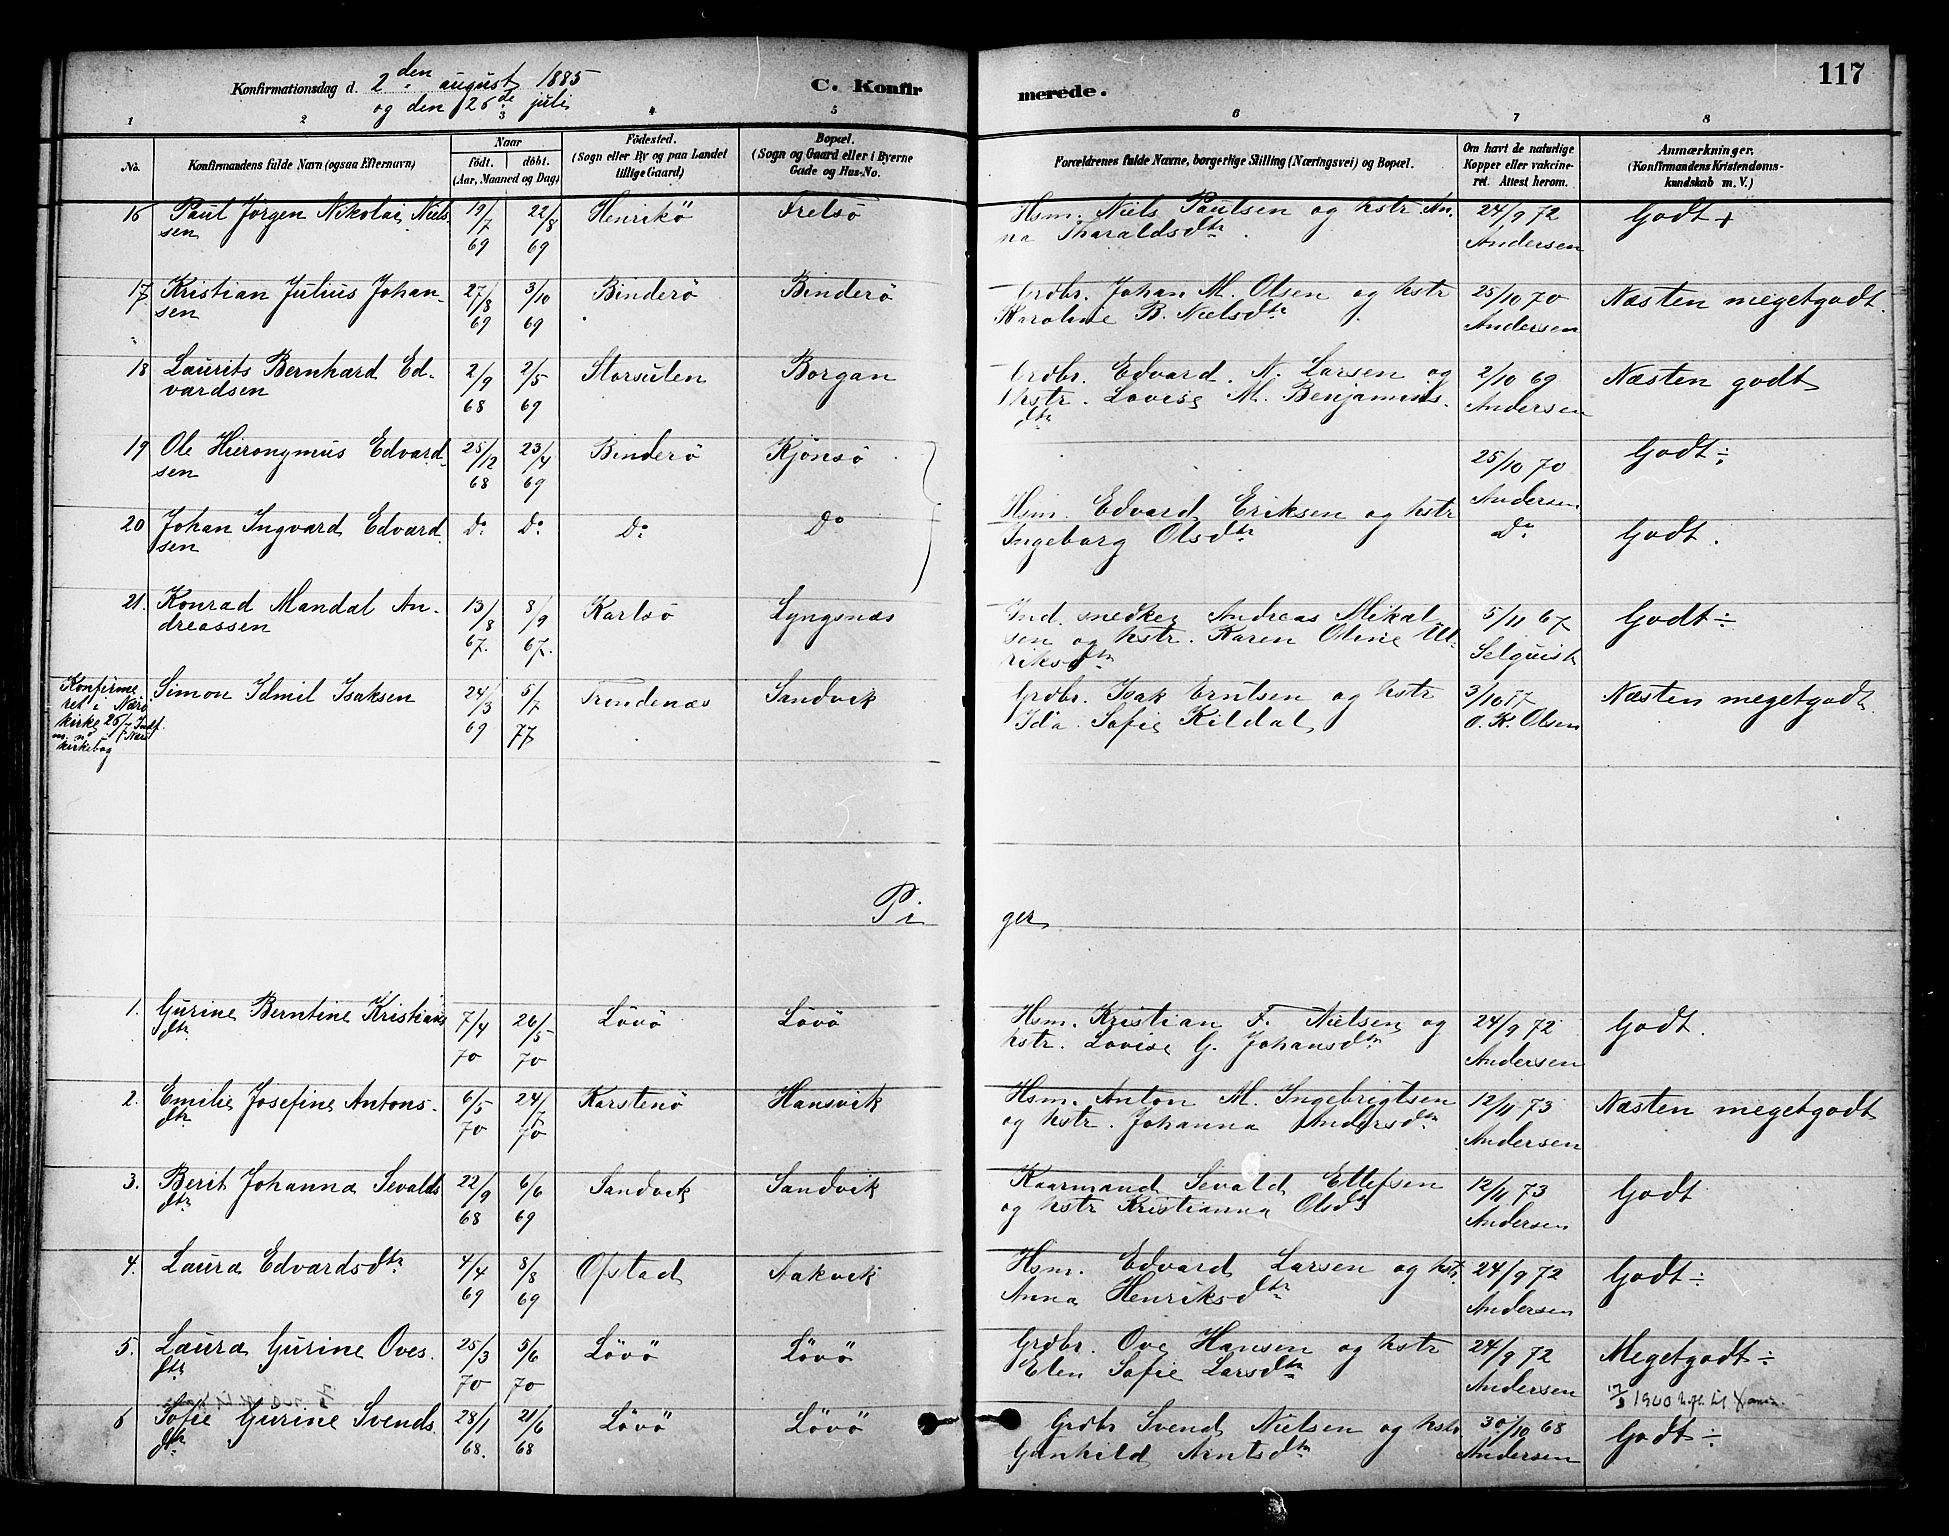 117
Konfirmationsdag d. 2den august 1885
og den 26de juli
C. Konfirmerede.
1 2 3 4 5 6 7 8
No.
Konfirmandens fulde Navn (ogsaa Efternavn)
Naar
født. døbt.
(Aar, Maaned og Dag)
Fødested.
(Sogn eller By og paa Landet
tillige Gaard)
Bopæl.
(Sogn og Gaard eller i Byerne
Gade og Hus-No.
Forældrenes fulde Navne, borgerlige Stilling (Næringsvei) og Bopæl.
Om havt de naturlige
Kopper eller vakcine-
ret. Attest herom.
Anmærkninger.
(Konfirmandens Kristendoms-
kundskab m. V.)
16 Paul Jørgen Nikolai Niels 19/7 22/8 Henrikö Frelsö Hsm. Niels Paulsen og kstr An- 24/9 72 Godt +
sen 69 69 na Tharaldsdtr. Andersen
17 Kristian Julius Johan- 27/8 3/10 Binderö Binderö Grdbr. Johan M. Olsen og kstr 25/10 70 Næsten megetgodt.
sen 69 69 Karoline B. Nielsdtr Andersen
18 Laurits Bernhard Ed- 2/9 2/5 Storsulen Borgan Grdbr. Edvard N. Larsen og 2/10 69 Næsten godt
vardsen 68 69 kstr. Lovise M. Benjamins- Andersen
dtr
19 Ole Hieronymus Edvard- 25/12 23/4 Binderö Kjönsö 25/10 70 Godt ÷
sen 68 69 Andersen
Hsm. Edvard Eriksen og kstr
20 Johan Ingvard Edvard- Do Do Do Do Ingeborg Olsdtr Do Godt.
sen
21. Konrad Mandal An- 13/8 8/9 Karlsö Lyngsnæs Ind. snedker Andreas Mikal- 5/11 67 Godt ÷
dreassen 67. 67. sen og kstr. Karen Oline Ul- Selquist
riksdtr
Konfirme Simon Idmil Isaksen 24/3 5/7 Trendenæs Sandvik Grdbr. Isak Erntsen og kstr 3/10 77 Næsten megetgodt
ret i Nærö 69 77 Ida Sofie Kildal O. K. Olsen
kirke 26/7
kirkebog
Piger
1. Gurine Berntine Kristians 7/4 26/5 Lövö Lövö Hsm. Kristian F. Nielsen og 24/9 72 Godt.
dtr 70 70 kstr. Lovise G. Johansdtr Andersen
2. Emilie Josefine Antons- 6/5 24/7 Karstenö Hansvik Hsm. Anton M. Ingebrigtsen 12/11 73 Næsten megetgodt
dtr 70 70 og kstr. Johanna Andersdtr Andersen
3. Berit Johanna Sevalds 22/9 6/6 Sandvik Sandvik Kaarmand Sevald Ellefsen 12/11 73 Godt
dtr 68 69 og kstr Kristianna Olsdtr Andersen
4. Laura Edvardsdtr 4/4 8/8 Ofstad Aakvik Hsm. Edvard Larsen og kstr. 24/9 72 Godt ÷
69 69 Anna Henriksdtr Andersen
5. Laura Gurine Oves. 25/3 5/6 Lövö Lövö Grdbr. Ove Hansen og kstr 24/9 72 Megetgodt ÷
dtr 70 70 Elen Sofie Larsdtr Andersen
1900
6 Sofie Gurine Svends 28/1 21/6 Lövö Lövö Grdbr Svend Nielsen og kstr 30/10 68 Godt ÷
dtr 68. 68 Gunhild Arntsdtr Andersen